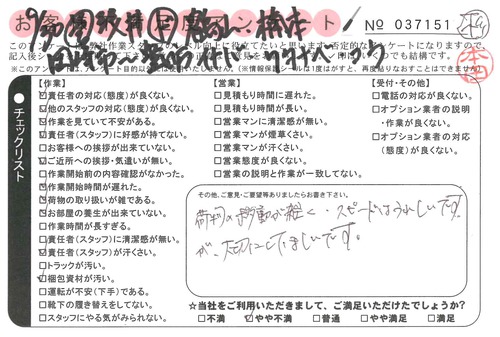 お客様満足度アンケート
No 037151
このアンケートは弊社作業スタッフのレベル向上に役立てたいと思います。否定的なアンケートになりますので、
【作業】
責任者の対応(態度)が良くない。
他のスタッフの対応(態度)が良くない。
作業を見ていて不安がある。
責任者(スタッフ)に好感が持てない。
お客様への挨拶が出来ていない。
ご近所への挨拶・気遣いが無い。
作業開始前の内容確認がなかった。
作業開始時間が遅れた。
荷物の取り扱いが雑である。
お部屋の養生が出来ていない。
作業時間が長すぎる。
責任者(スタッフ)に清潔感が無い。
責任者(スタッフ)が汗くさい。
トラックが汚い。
梱包資材が汚い。
運転が不安(下手)である。
靴下の履き替えをしてない。
スタッフにやる気がみられない。
【営業】
見積もり時間に遅れた。
見積もり時間が長い。
営業マンに清潔感が無い。
営業マンが煙草くさい。
営業マンが汗くさい。
営業態度が良くない。
営業の説明と作業が一致してない。
【受付・その他】
電話の対応が良くない。
オプション業者の説明
・作業が良くない。
オプション業者の対応
(態度)が良くない。
チェックリスト
その他、ご意見・ご要望等ありましたらお書き下さい。
スピードはうれしいです
が、大切にしてほしいです。
☆当社をご利用いただきまして、ご満足いただけたでしょうか?
不満 やや不満 普通 やや満足 満足